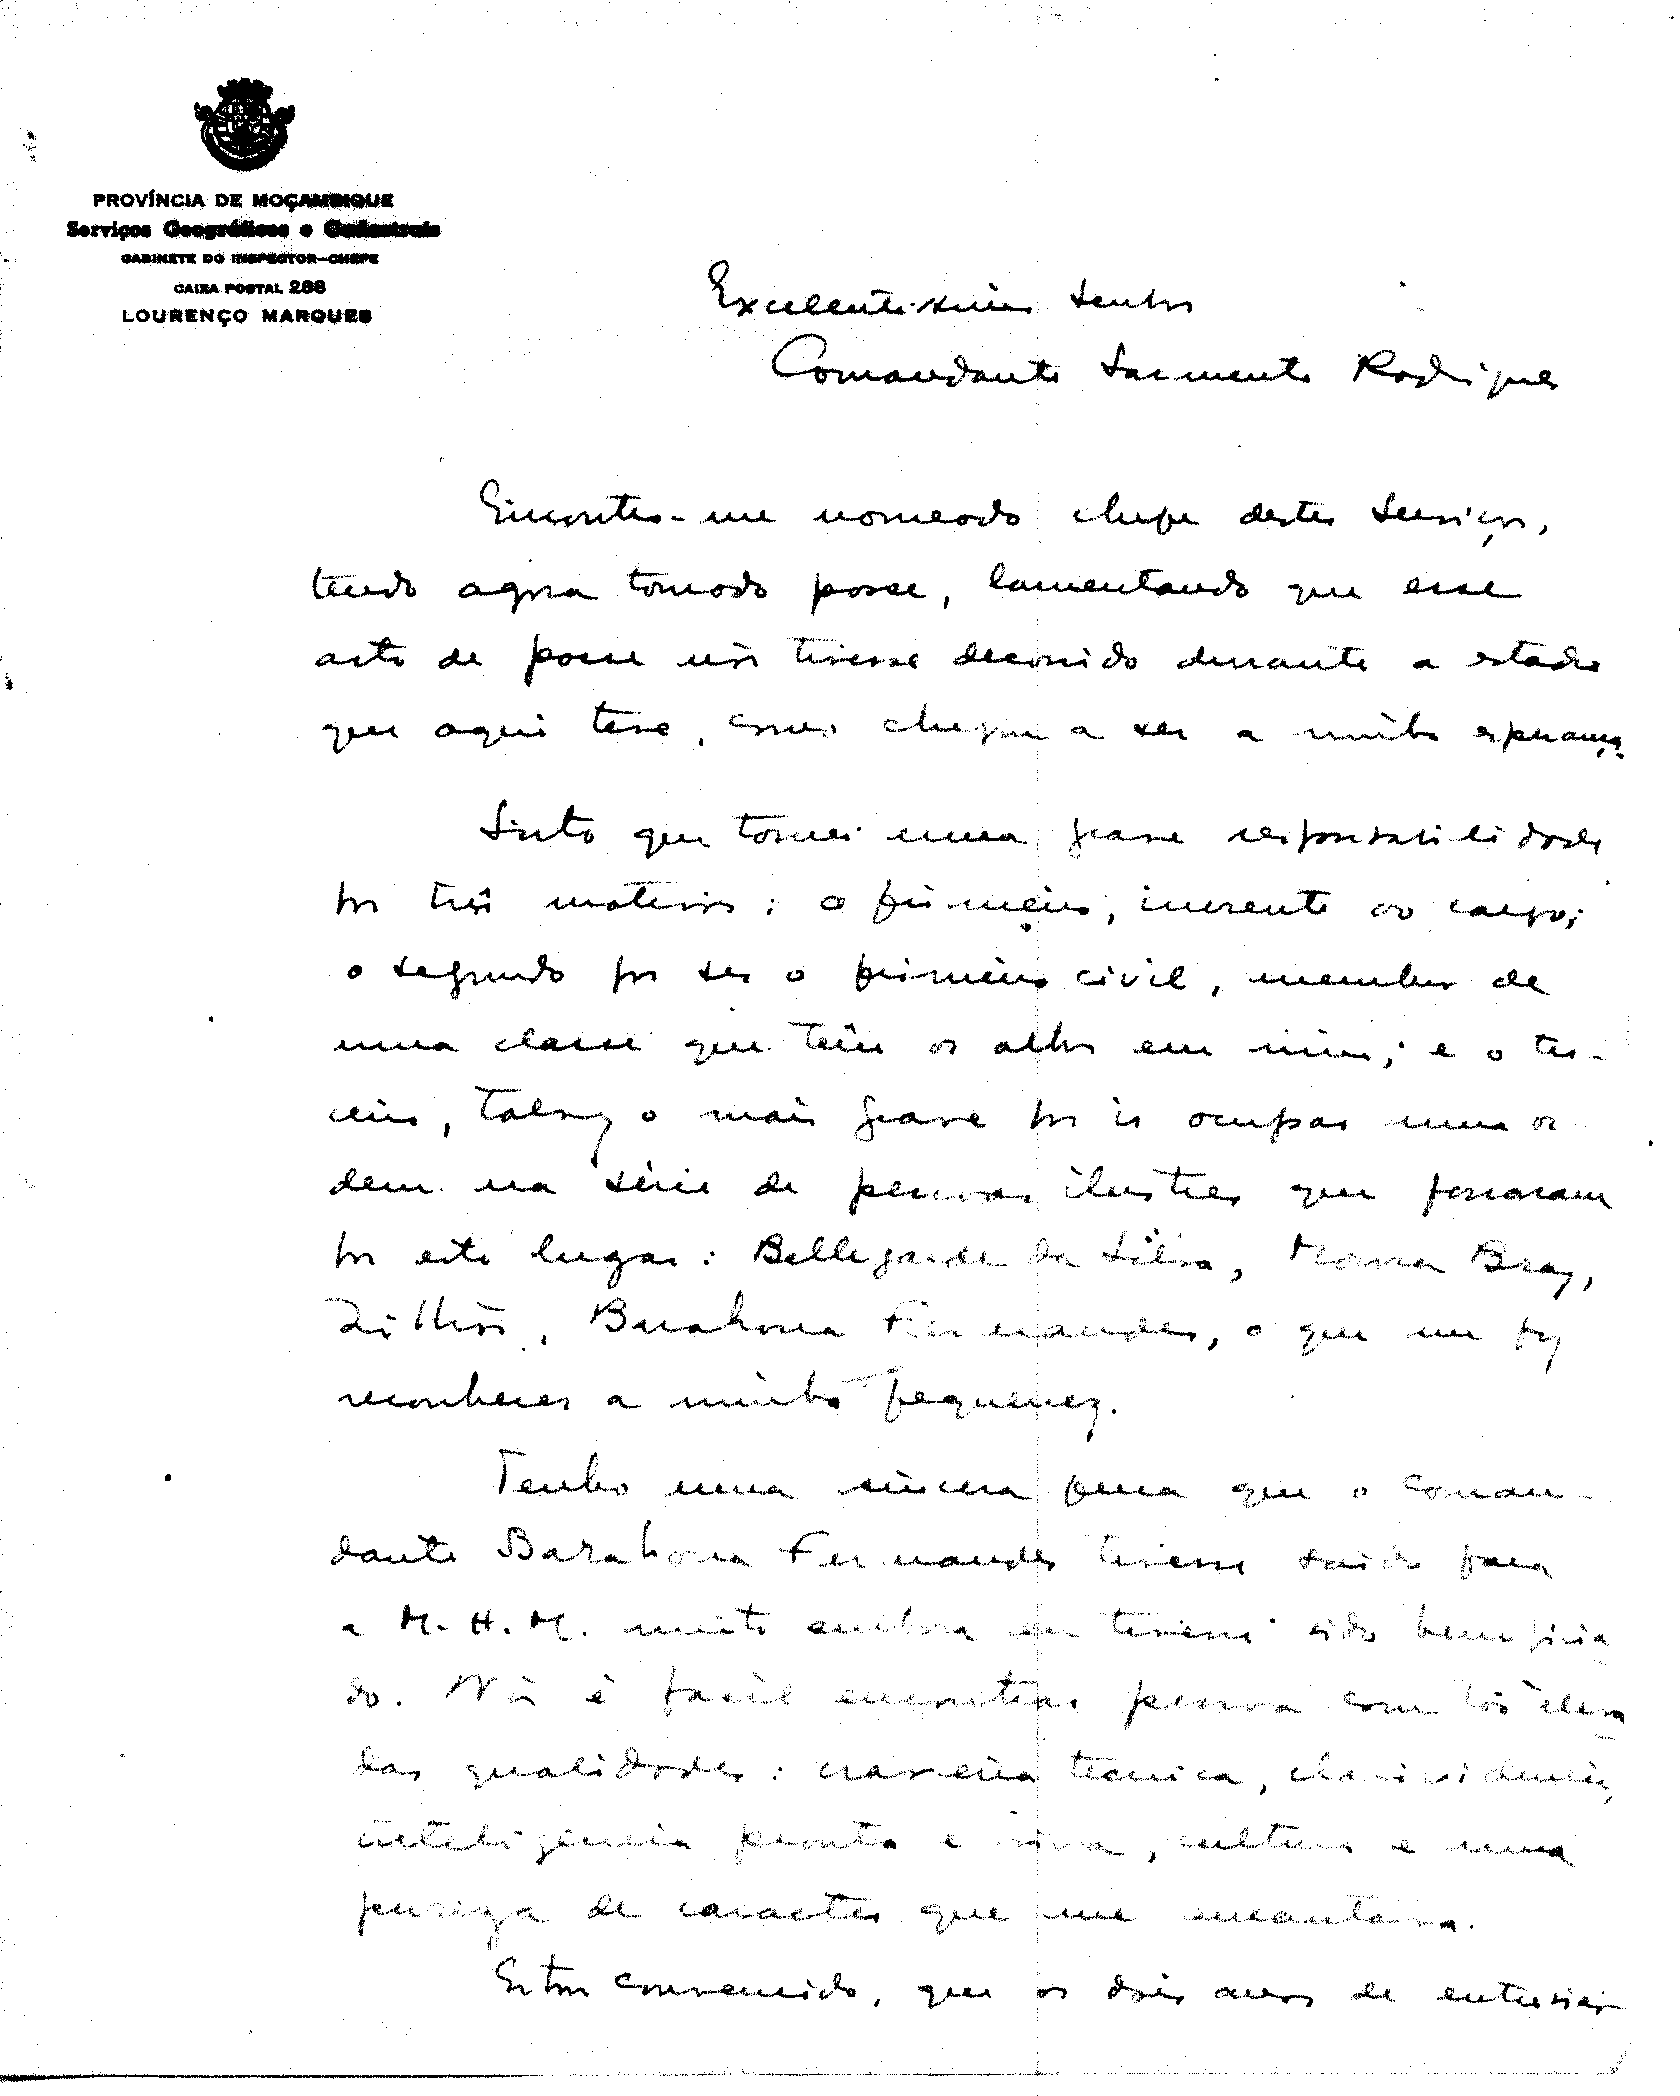 PROVÍNCIA DE MOÇAMBIQUE
Serviços Geográficos e Cadastrais
GABINETE DO INSPECTOR-CHEFE
CAIXA POSTAL 288
LOURENÇO MARQUES
Excelentíssimo Senhor
Comandante Sarmento Rodrigues
Encontro-me nomeado chefe destes Serviços,
tendo agora tomado posse, lamentando que esse
acto de posse não tivesse decorrido durante a estadia
que aqui teve, como chegou a ser a minha esperança.
Sinto que tomei uma grave responsabilidade
por três motivos: o primeiro, inerente ao cargo;
o segundo por ser o primeiro civil, membro de
uma classe que têm os olhos em mim; e o ter-
ceiro, talvez o mais grave por ir ocupar uma or
dem na série de pessoas ilustres que passaram
por este lugar: Bellegarde da Silva, Moura Braz,
Zilhão, Barahona Fernandes, o que me faz
reconhecer a minha pequenez.
Tenho uma sincera pena que o Coman-
dante Barahona Fernandes tivesse saído para
a M.H.M. muito embora eu tivesse sido beneficia
do. Não é fácil encontrar pessoa com tão eleva
das qualidades: craveira técnica, clarividência,
inteligência pronta e viva, cultura e uma
pureza de caracter que me encantava.
Estou convencido, que os dois anos de entusias